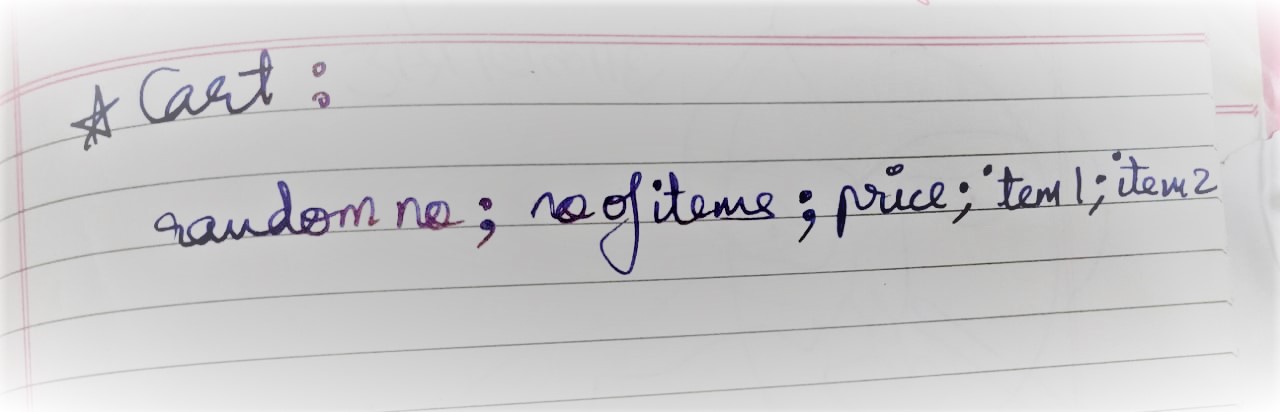 ☆ Cart :
random no ; no of items ; price ; item 1 ; item 2